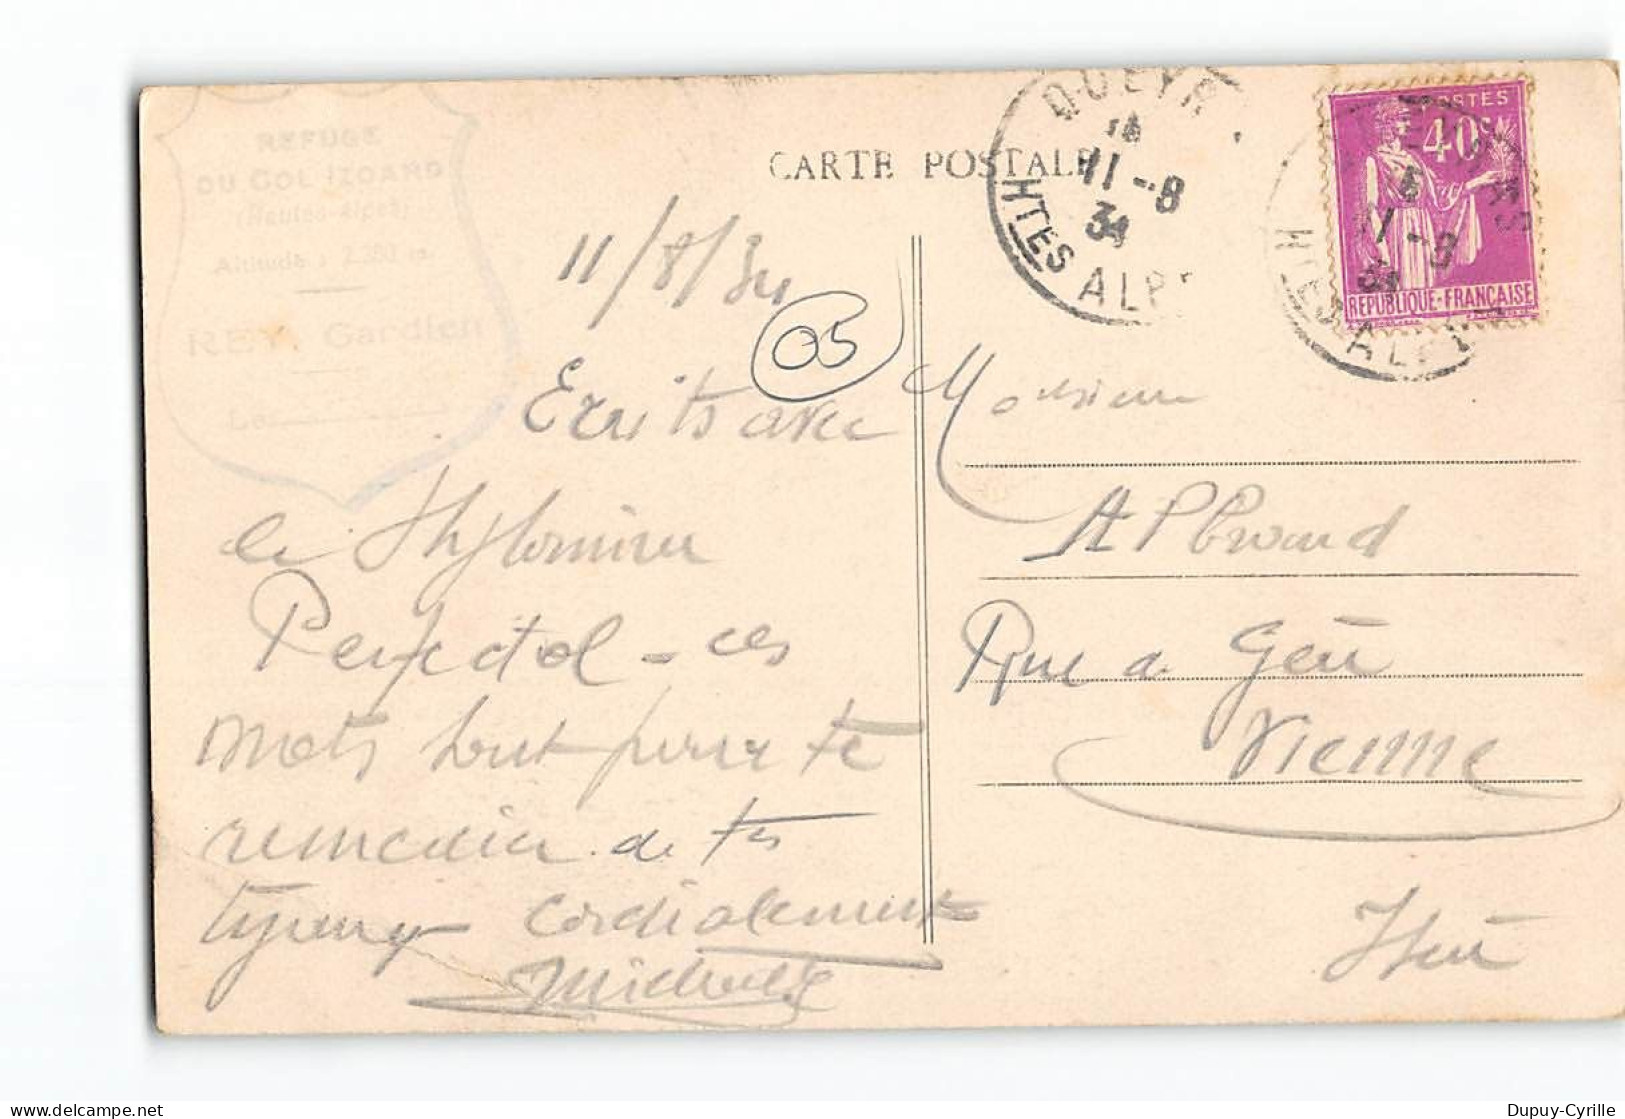 REFUGE
DU COL IZOARD
(Hautes-Alpes)
Altitude : 2.380 m.
REY, Gardien
Le
CARTE POSTALE
QUEYR
11 -8
34
HTES ALP
POSTES
40c
REPUBLIQUE-FRANÇAISE
11 -8
34
HTES ALPES
11/8/34
05
Ecrits avec
le Stylomine
Perfectol - ces
mots tout pour te
remercier de tes
Cordialement
Monsieur
Rue a Gère
Vienne
Isère
Dupuy-Cyrille